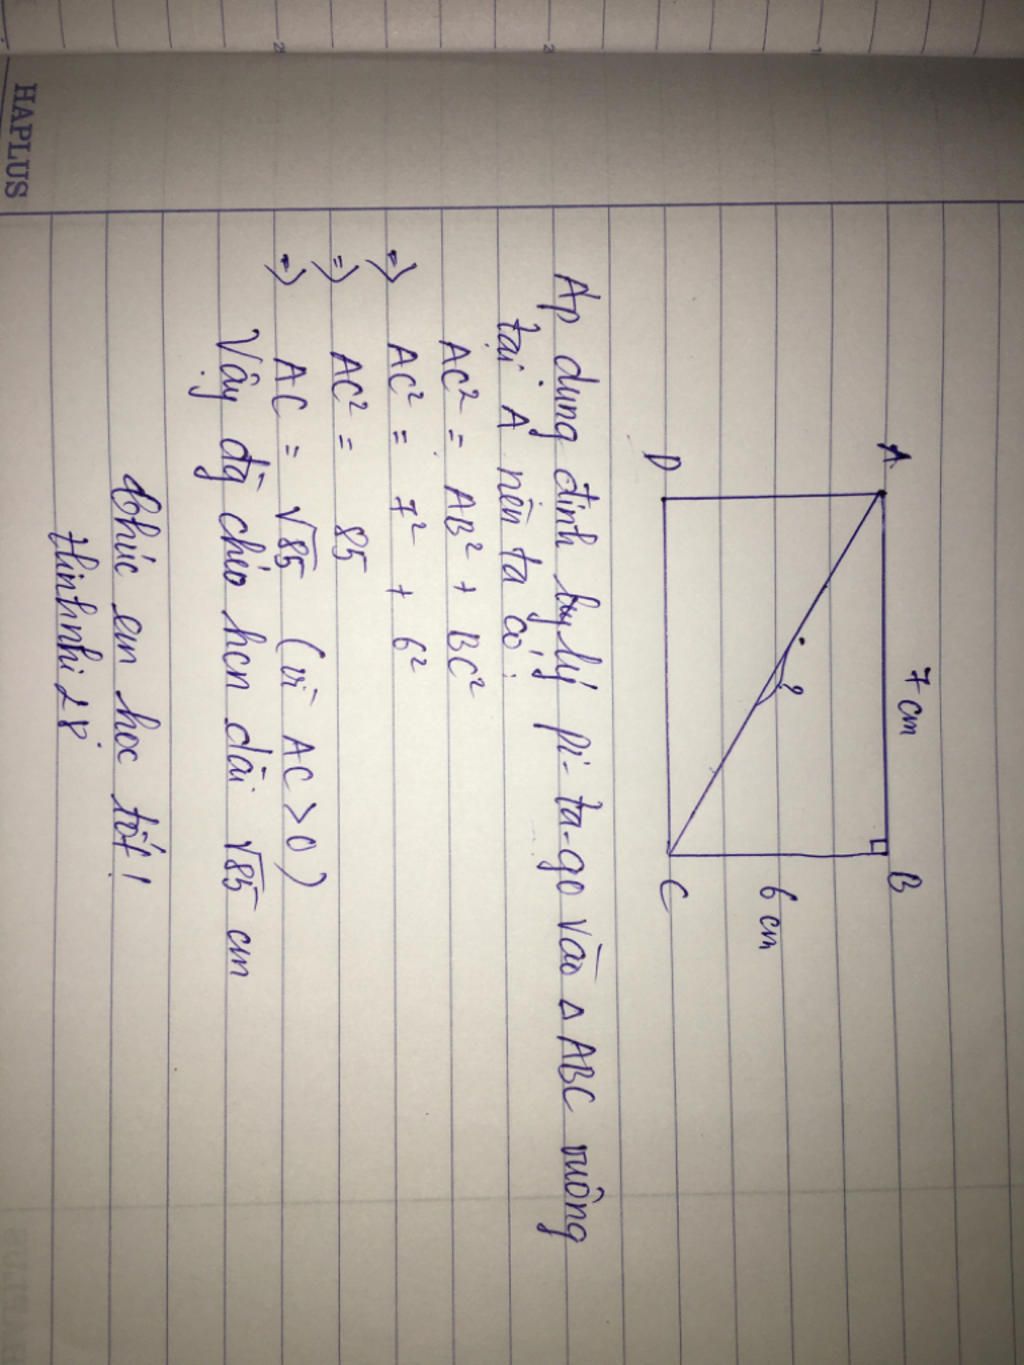 HAPLUS
A
7 cm
B
6 cm
?
D
C
Áp dụng định lý pi-ta-go vào Δ ABC vuông
tại A nên ta có:
AC² = AB² + BC²
=> AC² = 7² + 6²
=> AC² = 85
=> AC = √85 (vì AC > 0)
Vậy đg chéo hcn dài √85 cm
Chúc em học tốt!